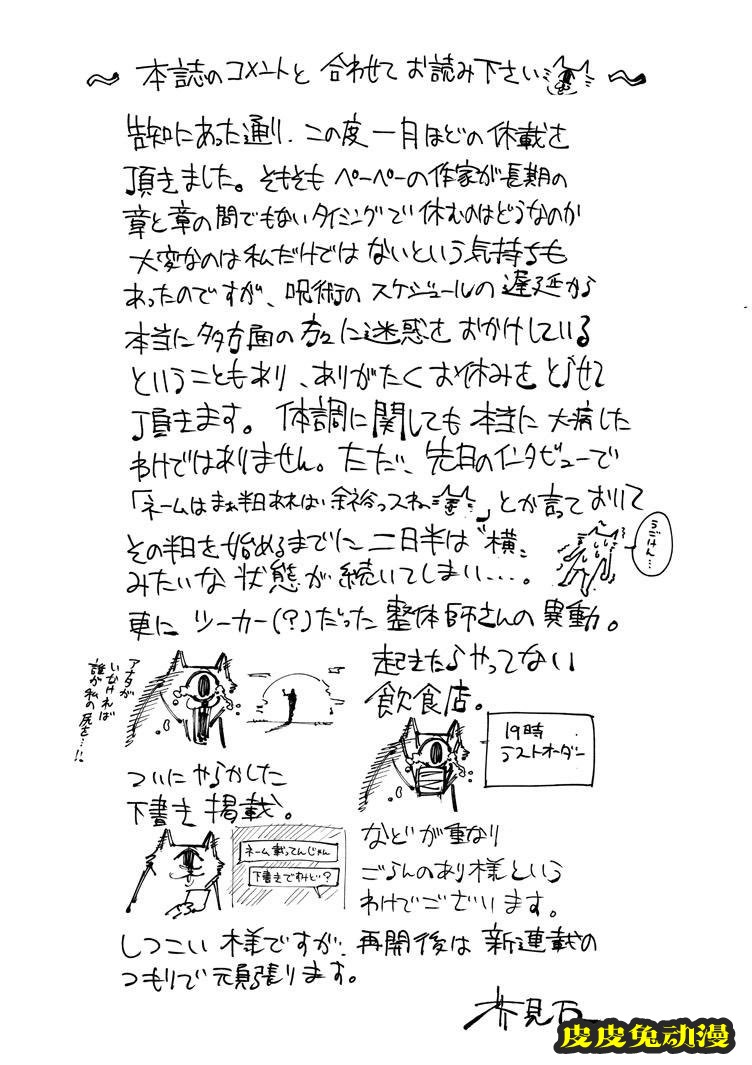 ～ 本誌のコメントと 合わせて お読み下さい ～
告知にあった通り、この度 一月ほどの休載を
頂きました。そもそも ペーペーの作家が長期の
章と章の間でもないタイミングで休むのはどうなのか
大変なのは私だけでは ないという気持ちも
あったのですが、呪術の スケジュールの遅延から
本当に多方面の方々に迷惑を おかけしている
ということもあり、ありがたくお休みを とらせて
頂きます。体調に関しても 本当に 大病した
わけではありません。ただ、先日のインタビューで
「ネームはまぁ半日あれば余裕っスね」とか言っておいて
その半日を始めるまでに 二日半は〝横〟
みたいな 状態が 続いてしまい…。
うごけん…
更に ツーカー(？)だった 整体師さんの 異動。
アナタが
いなければ
誰が私の尻を…!!
起きたらやってない
飲食店。
19時
ラストオーダー
ついに やらかした
下書き 掲載。
ネーム載ってんじゃん
下書きですけど？
などが重なり
ごらんのあり様という
わけでございます。
しつこい 様ですが、再開後は 新連載の
つもりで 頑張ります。
芥見下々
皮皮兔动漫